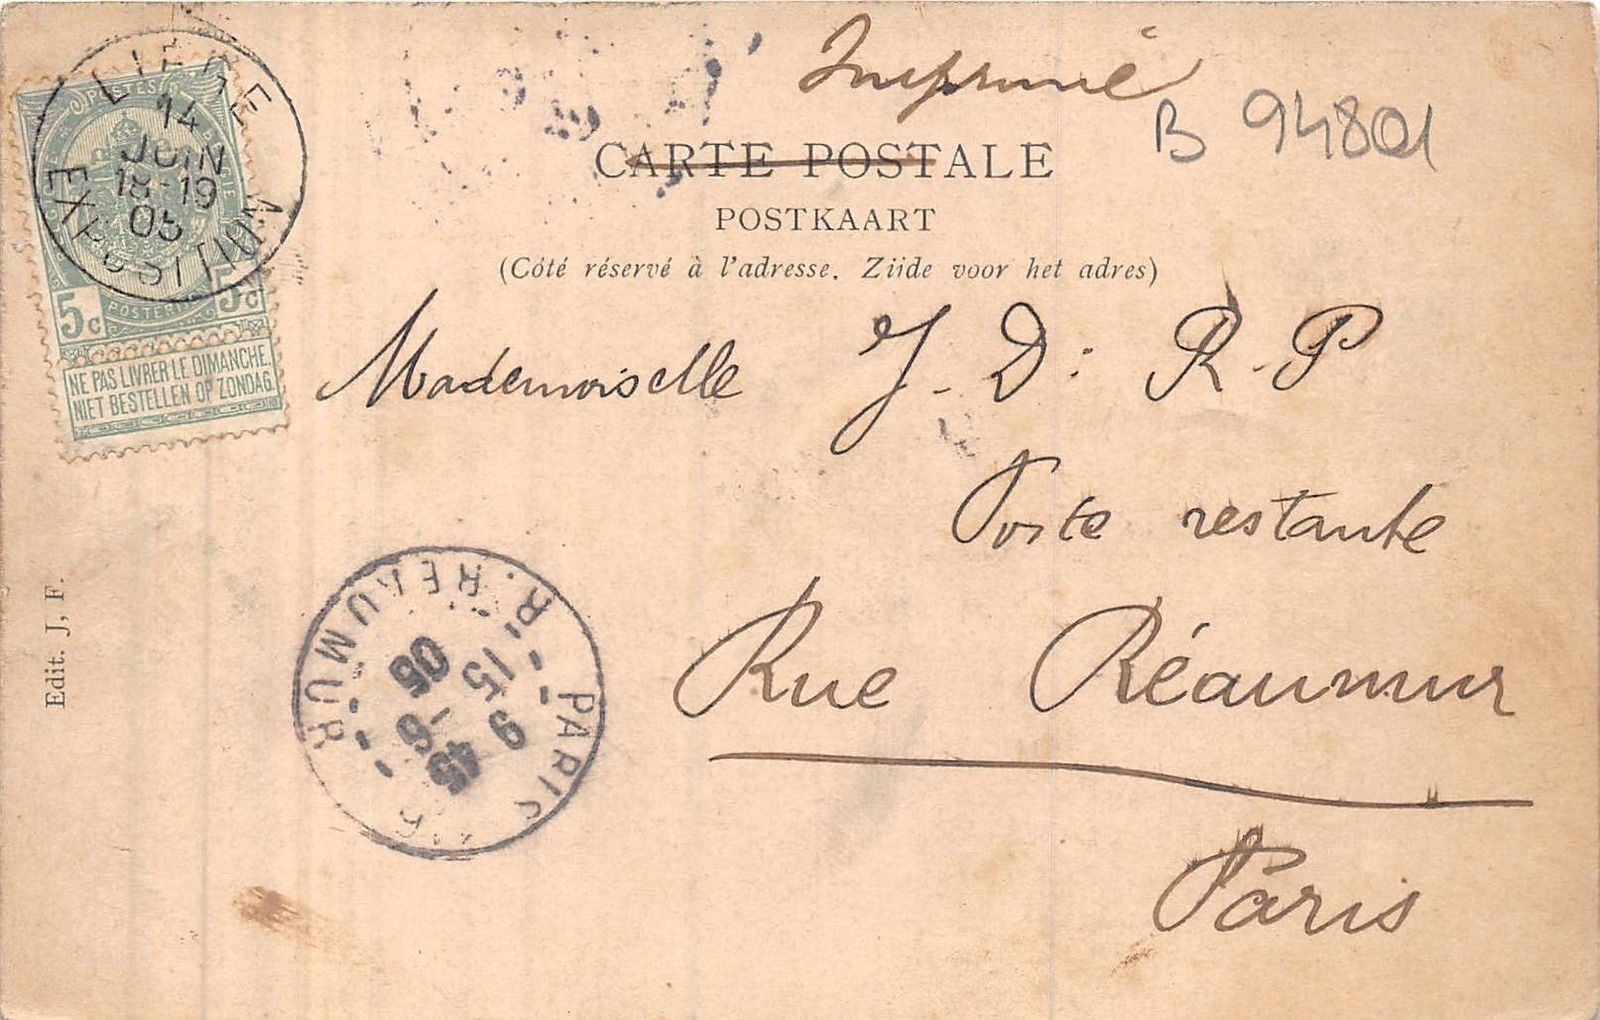 Imprimé
B 94801
CARTE POSTALE
POSTKAART
(Côté réservé à l'adresse. Ziide voor het adres)
LIEGE
14
JUIN
18-19
05
EXPOSITION
POSTES
5c 5c
NE PAS LIVRER LE DIMANCHE.
NIET BESTELLEN OP ZONDAG
Mademoiselle J. D: R. P
Poste restante
Rue Réaumur
Paris
PARIS
R. REAUMUR
9 45
15 - 6
05
Edit. J, F.